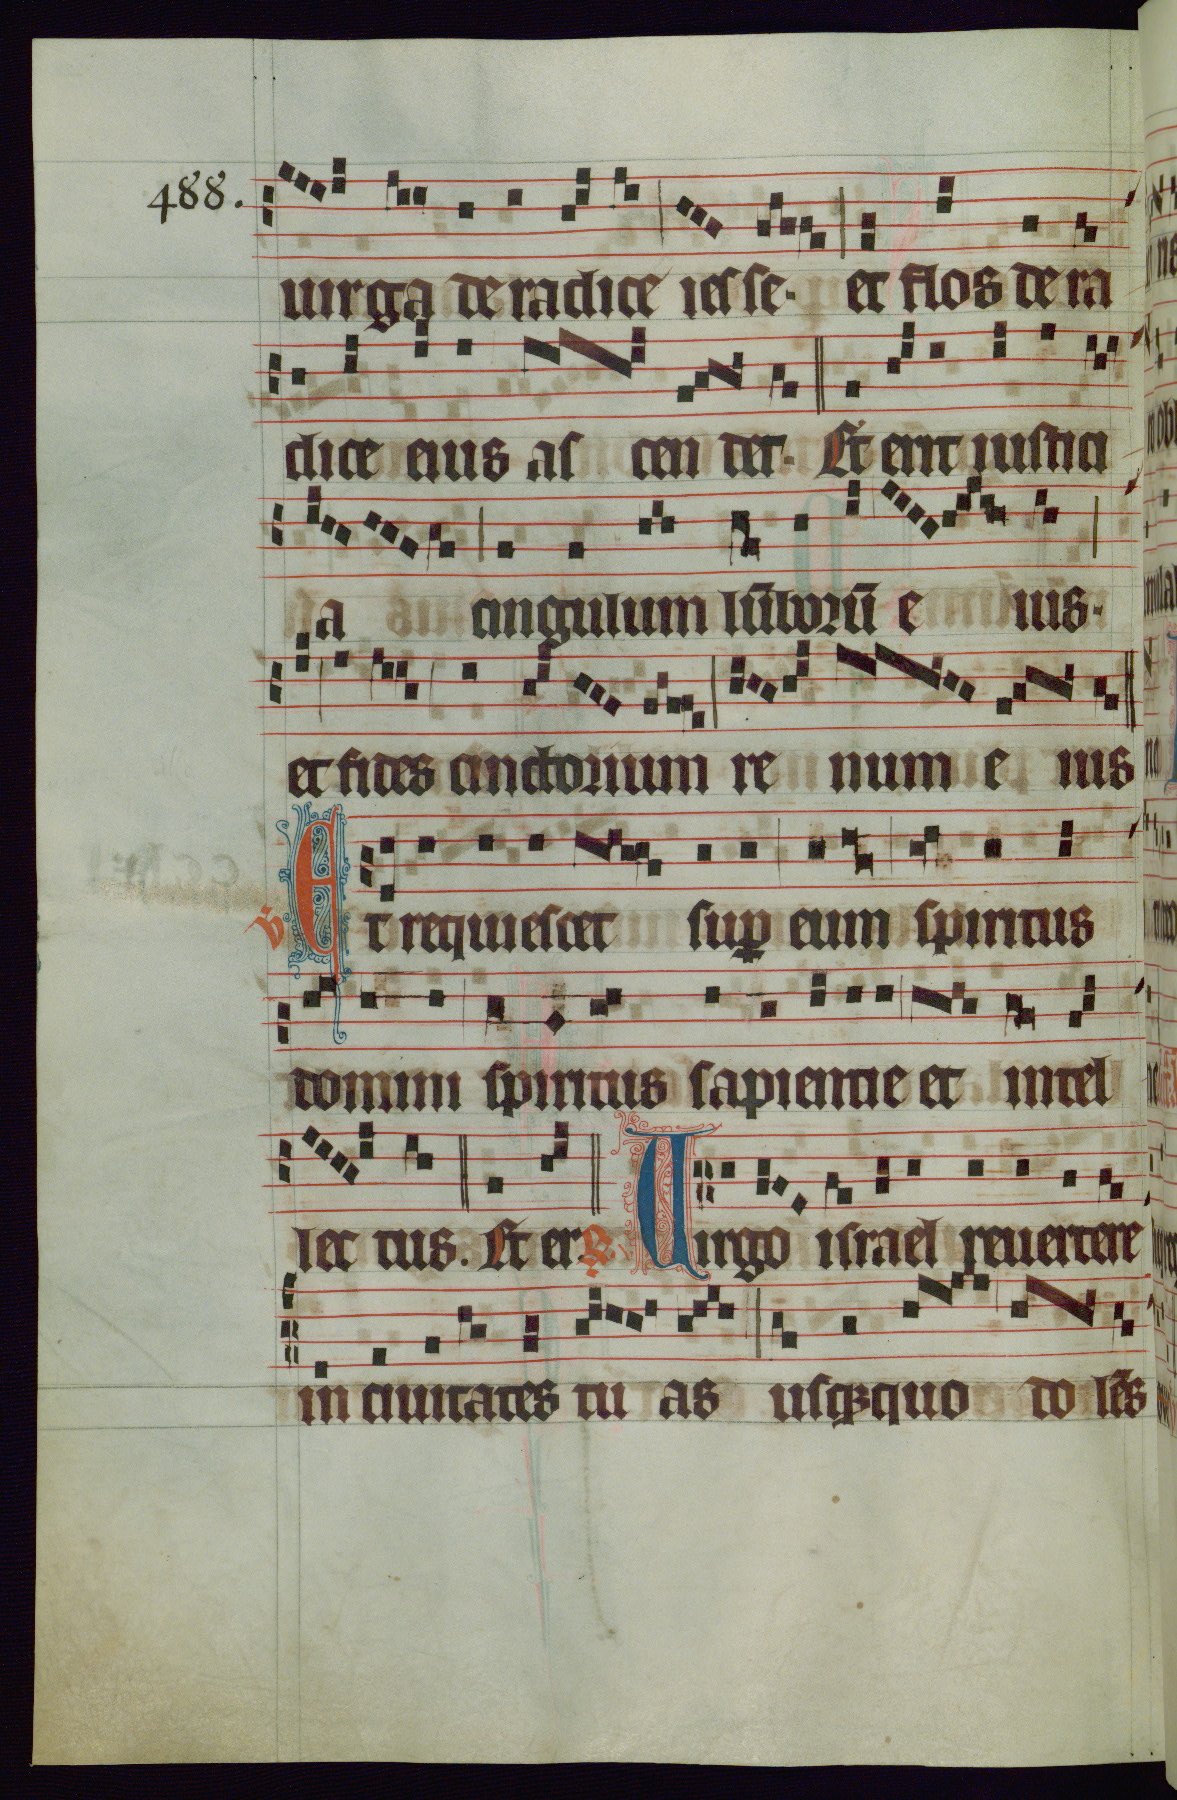 488.
uirga de radice iesse. et flos de ra
dice eius as cen det. Et erit iustici
a cingulum lūborū e ius.
et fides cinctorium re num e ius
V Et requiescet sup eum spiritus
domini spiritus sapientie et intel
lec tus. Et er. R Uirgo israel reuertere
in ciuitates tu as usq quo do lēs